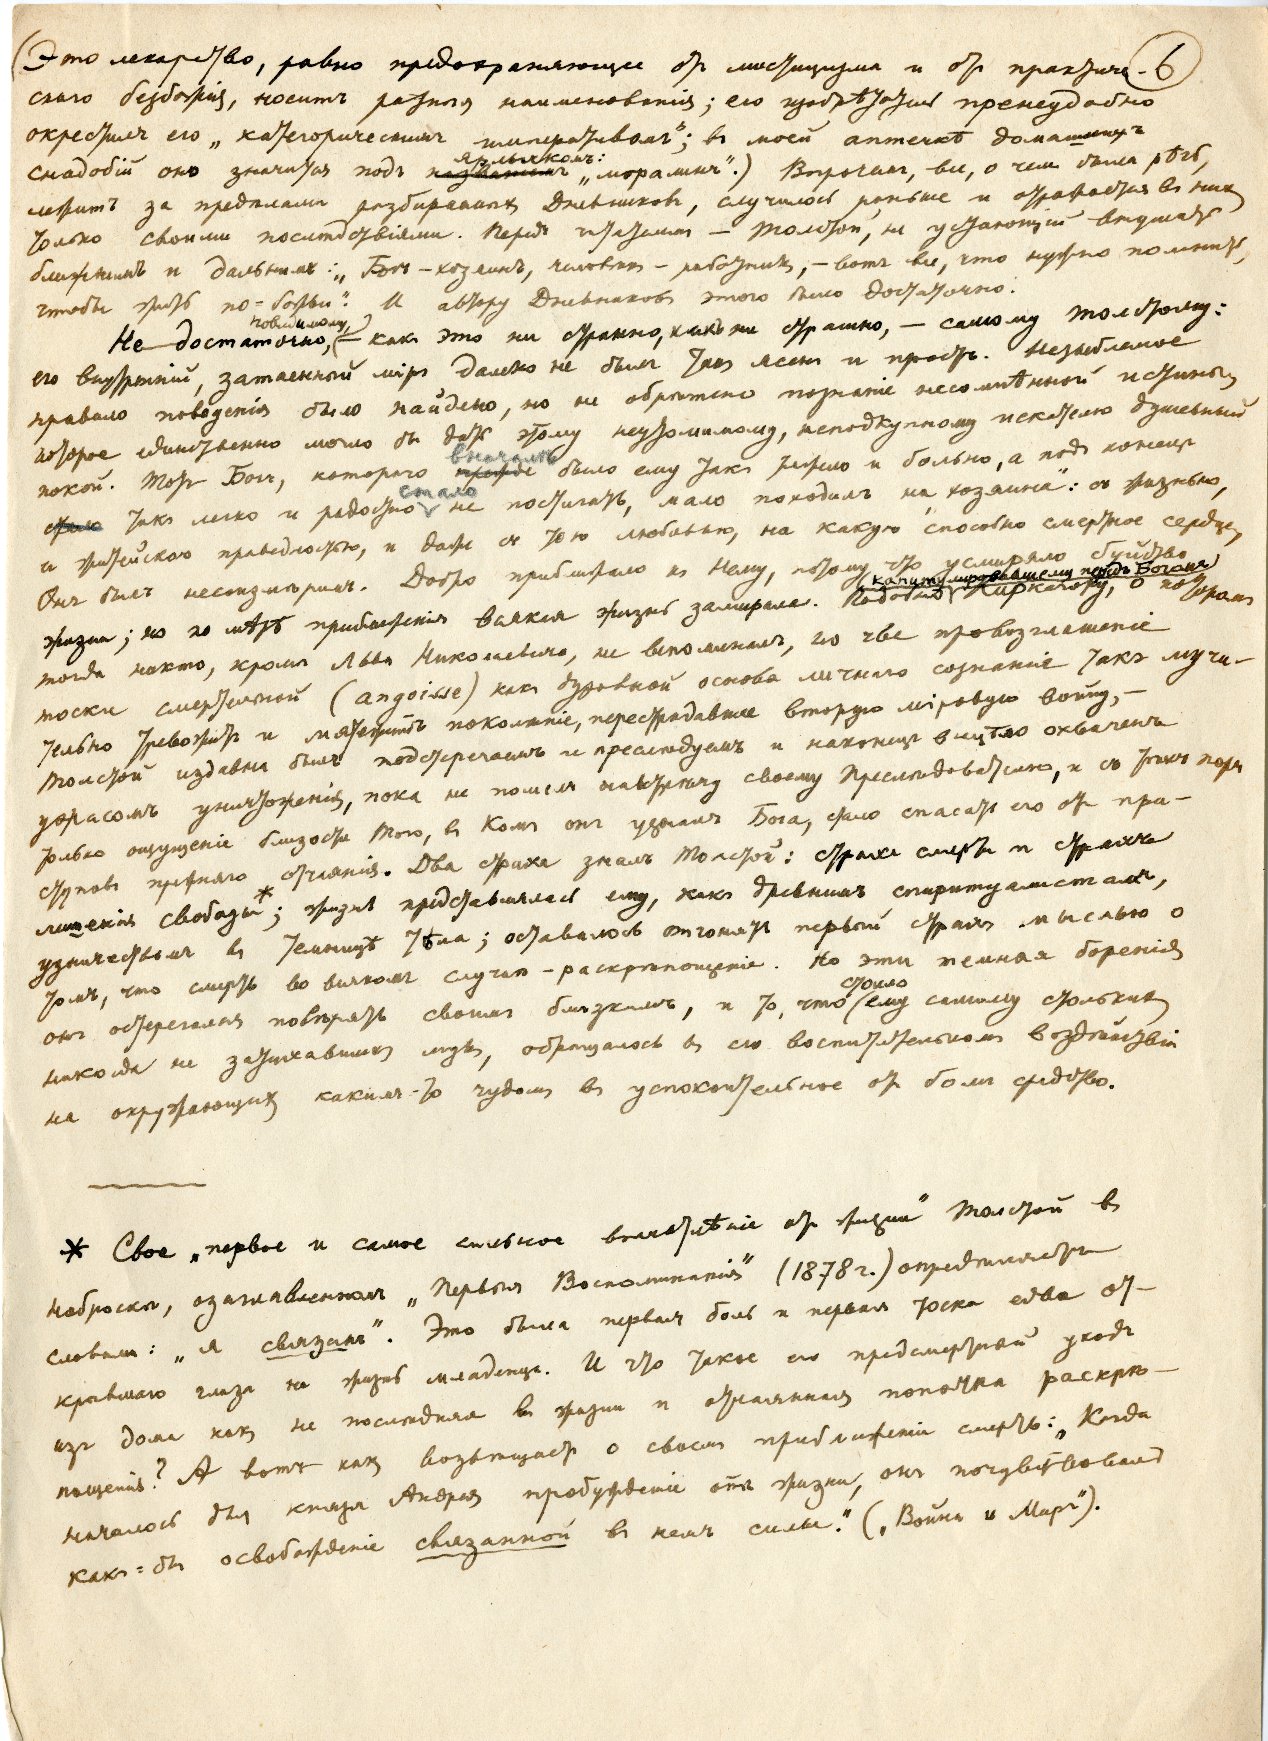 6
(Это лекарство, равно предохраняющее от мистицизма и от практиче-
скаго безбожія, носитъ разныя наименованія; его изобрѣтатель пренеудобно
окрестилъ его „категорическимъ императивомъ"; въ моей аптечкѣ домашнихъ
снадобій оно значится подъ ярлыкомъ: „моралинъ".) Впрочемъ, все, о чемъ была рѣчь,
лежитъ за предѣлами разбираемыхъ Дневниковъ, случилось раньше и отражается въ нихъ
только своими послѣдствіями. Передъ читателемъ – Толстой, не устающій внушать
ближнимъ и дальнимъ: „Богъ – хозяинъ, человѣкъ – работникъ, – вотъ все, что нужно помнить,
чтобы жить по-божьи". И автору Дневниковъ этого было достаточно.
Не достаточно, повидимому, – какъ это ни странно, какъ ни страшно, – самому Толстому:
его внутренній, затаенный міръ далеко не былъ такъ ясенъ и простъ. Незыблемое
правило поведенія было найдено, но не обрѣтено познаніе несомнѣнной истины,
которое единственно могло бы дать этому неутомимому, неподкупному искателю душевный
покой. Тотъ Богъ, котораго вначалѣ было ему такъ тяжело и больно, а подъ конецъ
такъ легко и радостно стало не постигать, мало походилъ на „хозяина": съ жизнью,
и житейскою праведностью, и даже съ тою любовью, на какую способно смертное сердце,
Онъ былъ несоизмѣримъ. Добро приближало къ Нему, потому что усмиряло буйство
жизни; но по мѣрѣ приближенія всякая жизнь замирала. Подобно Киркегору, капитулировавшему передъ Богомъ, о которомъ
тогда никто, кромѣ Льва Николаевича, не вспоминалъ, но чье провозглашеніе
тоски смертельной (angoisse) какъ духовной основы личнаго сознанія такъ мучи-
тельно тревожитъ и мятежитъ поколѣніе, перестрадавшее вторую міровую войну, –
Толстой издавна былъ подстерегаемъ и преслѣдуемъ и наконецъ всецѣло охваченъ
ужасомъ уничтоженія, пока не пошелъ навстрѣчу своему Преслѣдователю, и съ тѣхъ поръ
только ощущеніе близости Того, въ Комъ онъ узналъ Бога, стало спасать его отъ при-
ступовъ прежняго отчаянія. Два страха зналъ Толстой: страхъ смерти и страхъ
лишенія свободы*; жизнь представлялась ему, какъ древнимъ спиритуалистамъ,
узничествомъ въ темницѣ тѣла; оставалось отгонять первый страхъ мыслью о
томъ, что смерть во всякомъ случаѣ – раскрѣпощеніе. Но эти темныя боренія
онъ остерегался повѣрять своимъ близкимъ, и то, что стоило ему самому столькихъ
никогда не затихавшихъ мукъ, обращалось въ его воспитательномъ воздѣйствіи
на окружающихъ какимъ-то чудомъ въ успокоительное отъ боли средство.
* Свое „первое и самое сильное впечатлѣніе отъ жизни" Толстой въ
наброскѣ, озаглавленномъ „Первыя Воспоминанія" (1878 г.) опредѣляетъ
словами: „я связанъ". Это была первая боль и первая тоска едва от-
крывшаго глаза на жизнь младенца. И что такое его предсмертный уходъ
изъ дома какъ не послѣдняя въ жизни и отчаянная попытка раскрѣ-
пощенія? А вотъ какъ возвѣщаетъ о своемъ приближеніи смерть: „Когда
началось для князя Андрея пробужденіе отъ жизни, онъ почувствовалъ
какъ-бы освобожденіе связанной въ немъ силы." („Война и Миръ").